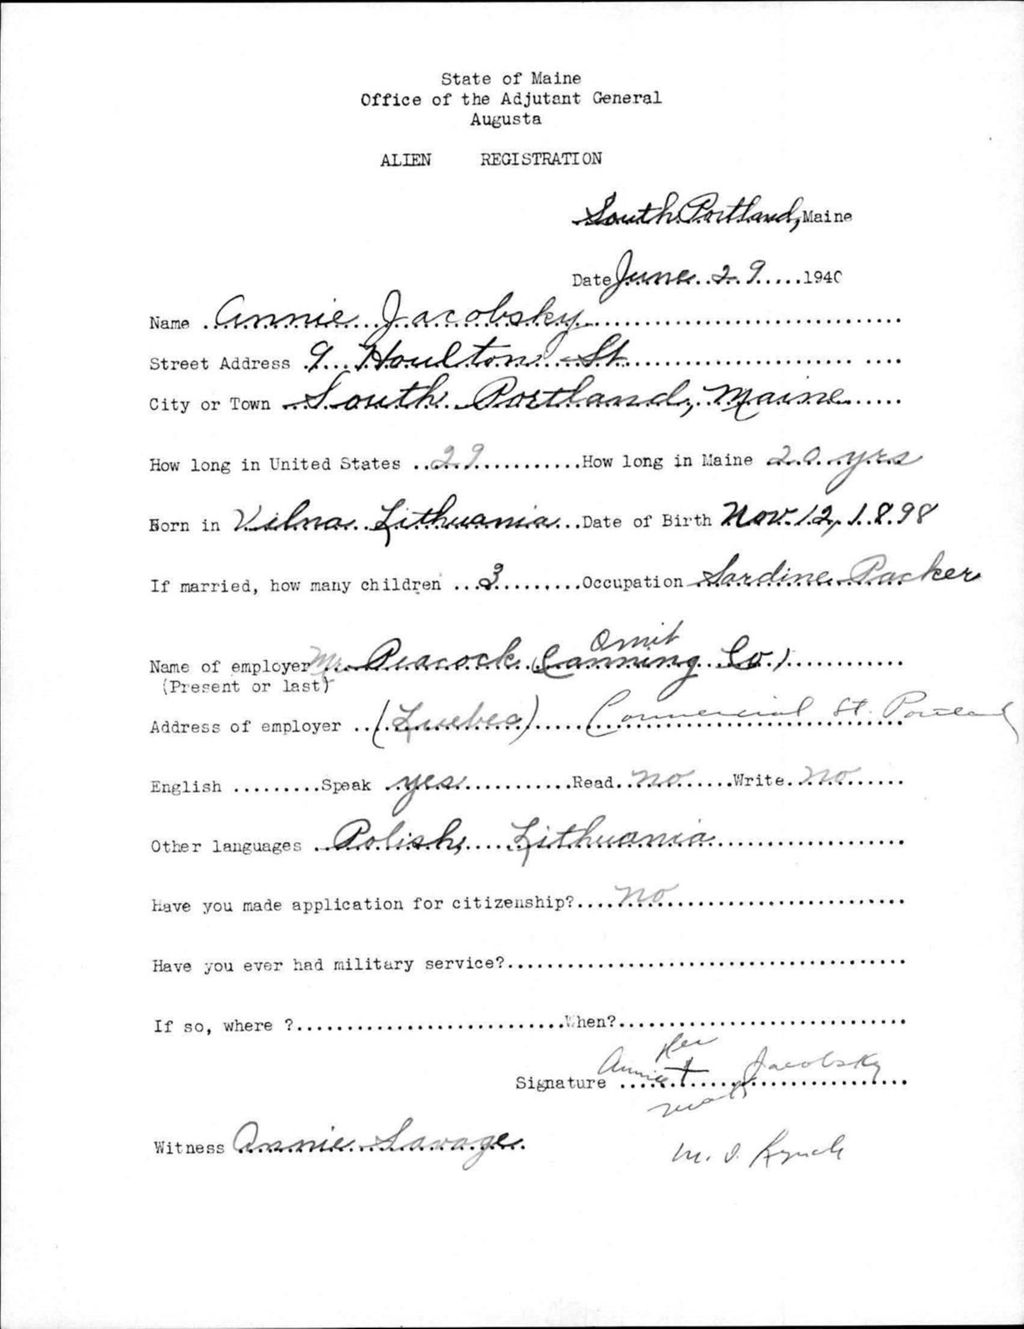 State of Maine
Office of the Adjutant General
Augusta
ALIEN REGISTRATION
South Portland, Maine
Date June 29 1940
Name Annie Jacobsky
Street Address 9 Houlton St.
City or Town South Portland, Maine
How long in United States 29 How long in Maine 20 yrs
Born in Vilna Lithuania Date of Birth Nov. 12, 1898
If married, how many children 3 Occupation Sardine Packer
Omit
Name of employer Peacock Canning Co.
(Present or last)
Address of employer (Lubec) Commercial St. Portland
English Speak yes Read no Write no
Other languages Polish, Lithuania
Have you made application for citizenship? no
Have you ever had military service?
If so, where ? When?
Her
Signature Annie + Jacobsky
mark
Witness Annie Savage
M. J.